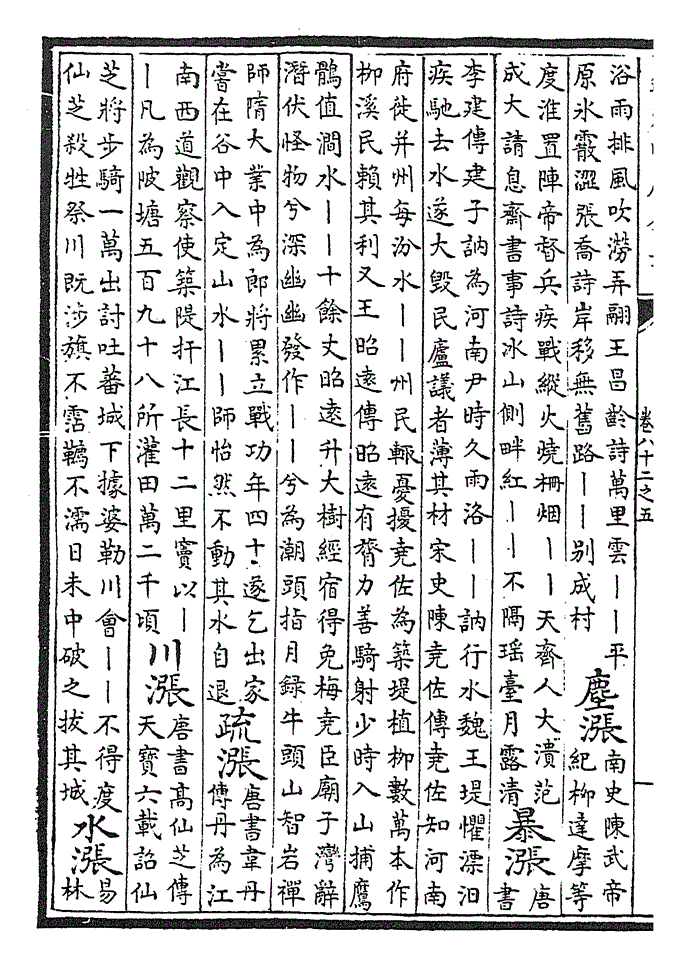 卷八十二之五
浴雨排風吹澇弄翮王昌齡詩萬里雲丨丨平
原氷霰澀張喬詩岸移無舊路丨丨別成村
塵漲
南史陳武帝
紀柳達摩等
度淮置陣帝督兵疾戰縱火燒柵烟丨丨天齊人大潰范
成大請息齋書事詩冰山側畔紅丨丨不隔瑶臺月露清
暴漲
唐
書
李建傳建子訥為河南尹時久雨洛丨丨訥行水魏王堤懼漂汩
疾馳去水遂大毀民廬議者薄其材宋史陳堯佐傳堯佐知河南
府徙并州每汾水丨丨州民輒憂擾堯佐為築堤植柳數萬本作
柳溪民賴其利又王昭遠傳昭遠有膂力善騎射少時入山捕鷹
鶻值澗水丨丨十餘丈昭遠升大樹經宿得免梅堯臣廟子灣辭
潛伏怪物兮深幽幽發作丨丨兮為潮頭指月録牛頭山智岩禪
師隋大業中為郎將累立戰功年四十遂乞出家
嘗在谷中入定山水丨丨師怡然不動其水自退
疏漲
唐書韋丹
傳丹為江
南西道觀察使築隄扞江長十二里竇以丨
丨凡為陂塘五百九十八所灌田萬二千頃
川漲
唐書高仙芝傳
天寶六載詔仙
芝將步騎一萬出討吐蕃城下據婆勒川會丨丨不得度
仙芝殺牲祭川既涉旗不霑韉不濡日未中破之拔其城
水漲
易
林